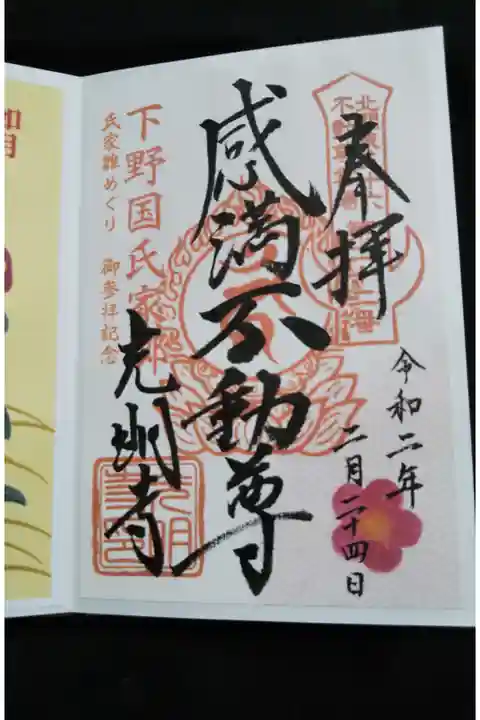 奉拝
令和二年
二月二十四日
感満不動尊
下野国氏家郷
氏家雛めぐり 御参拝記念
光明寺